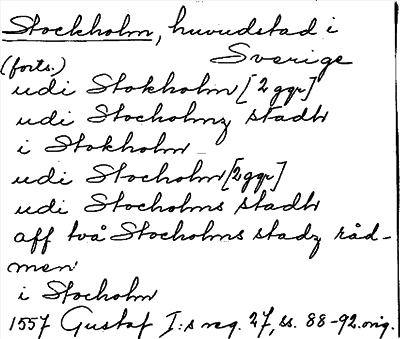 Stockholm, huvudstad i
Sverige
(forts.)
udi Stokholm [2 ggr]
udi Stocholmz stadh
i Stokholm
udi Stocholm [2 ggr]
udi Stocholms stadh
aff två Stocholms stadz råd-
men
i Stocholm
1557 Gustaf I:s reg. 27, ss. 88-92. orig.